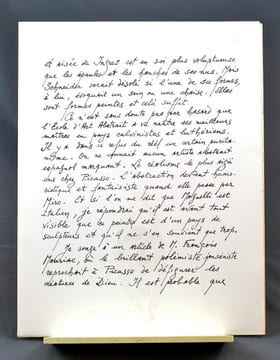 et aisée de Ingres est en soi plus voluptueuse
que les épaules et les hanches de ses nus. Mais
Schneider serait désolé si l'une de ses formes,
à lui, évoquait un sein ou une chaise. Elles
sont formes peintes et cela suffit.
Ce n'est sans doute pas par hasard que
l'École d'Art Abstrait a vu naître ses meilleurs
maîtres au pays calvinistes et luthériens.
Il y a dans ce refus du réel un certain purita-
nisme. On ne connaît aucun artiste abstrait
espagnol marquant. Le réalisme le plus aigu
sue chez Picasso. L'abstraction devient humo-
ristique et fantaisiste quand elle passe par
Miro. Et si l'on me dit que Magnelli est
Italien, je répondrai qu'il est avant tout
visible que le peintre est d'un pays de
sculpteurs et qu'il ne s'en souvient que trop.
Je songe à un article de M. François
Mauriac, où le brillant polémiste janséniste
reprochait à Picasso de défigurer les
créatures de Dieu. Il est probable que